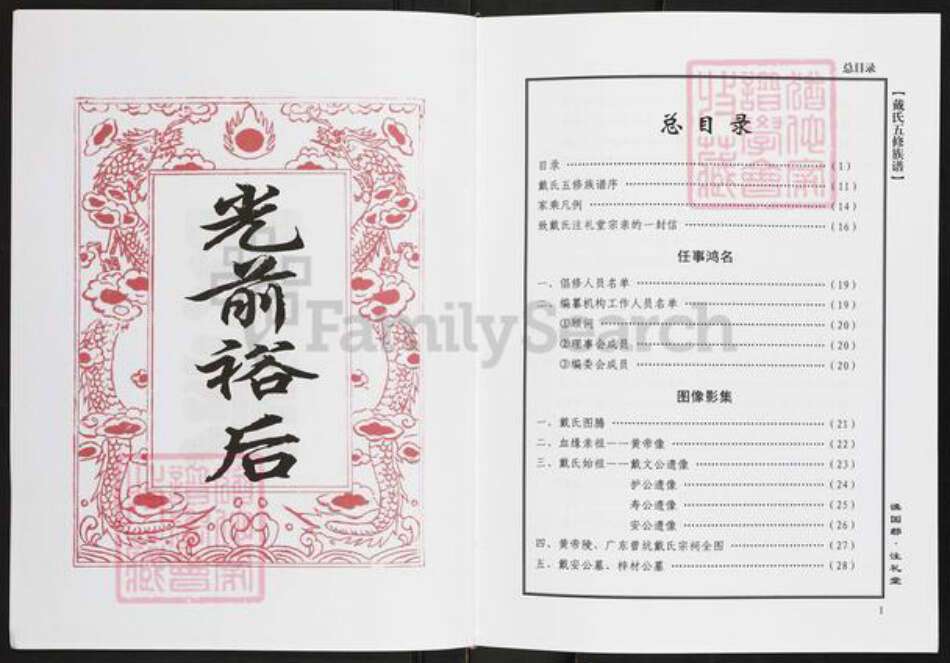 光前裕后
总目录
【戴氏五修族谱】
总目录
目录 (1)
戴氏五修族谱序 (11)
家乘凡例 (14)
致戴氏注礼堂宗亲的一封信 (16)
任事鸿名
一、倡修人员名单 (19)
二、编纂机构工作人员名单 (19)
①顾问 (20)
②理事会成员 (20)
③编委会成员 (20)
图像影集
一、戴氏图腾 (21)
二、血缘亲祖——黄帝像 (22)
三、戴氏始祖——戴文公遗像 (23)
护公遗像 (24)
寿公遗像 (25)
安公遗像 (26)
四、黄帝陵、广东曾坑戴氏宗祠全图 (27)
五、戴安公墓、梓材公墓 (28)
谯国郡·注礼堂
1
FamilySearch